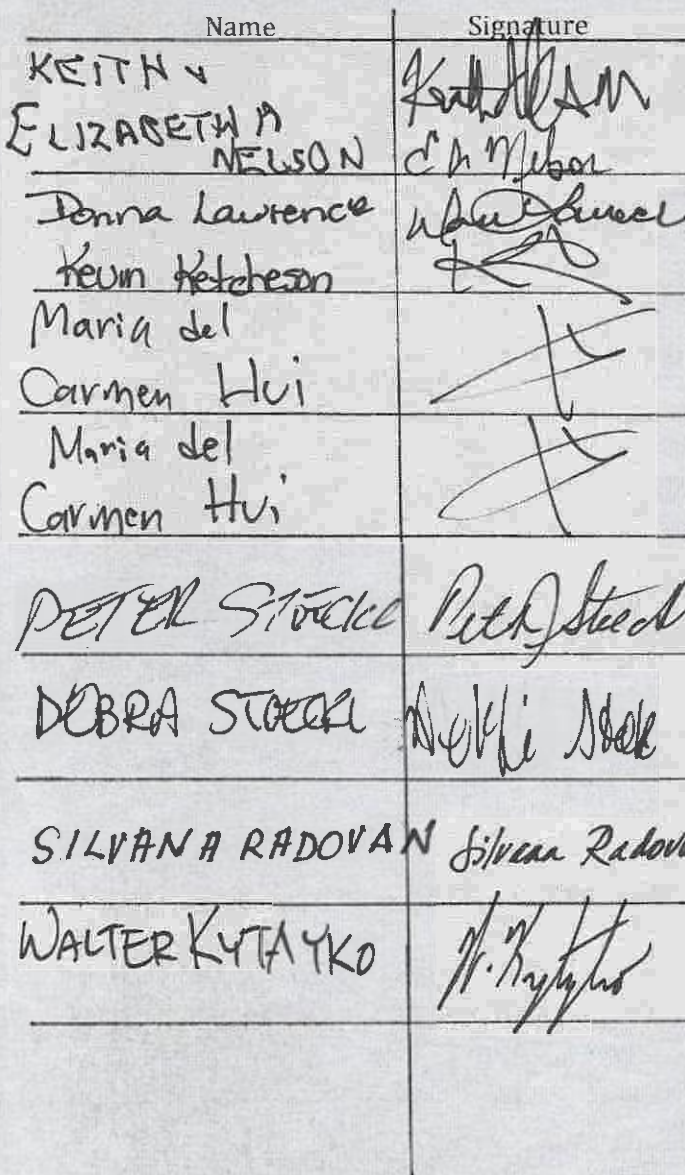 Name Signature
KEITH &
ELIZABETH A
NELSON E A Nelson
Donna Lawrence
Kevin Ketcheson
Maria del
Carmen Hui
Maria del
Carmen Hui
PETER STOECKL
DEBRA STOECKL
SILVANA RADOVAN Silvana Radova
WALTER KYTAYKO W. Kytayko